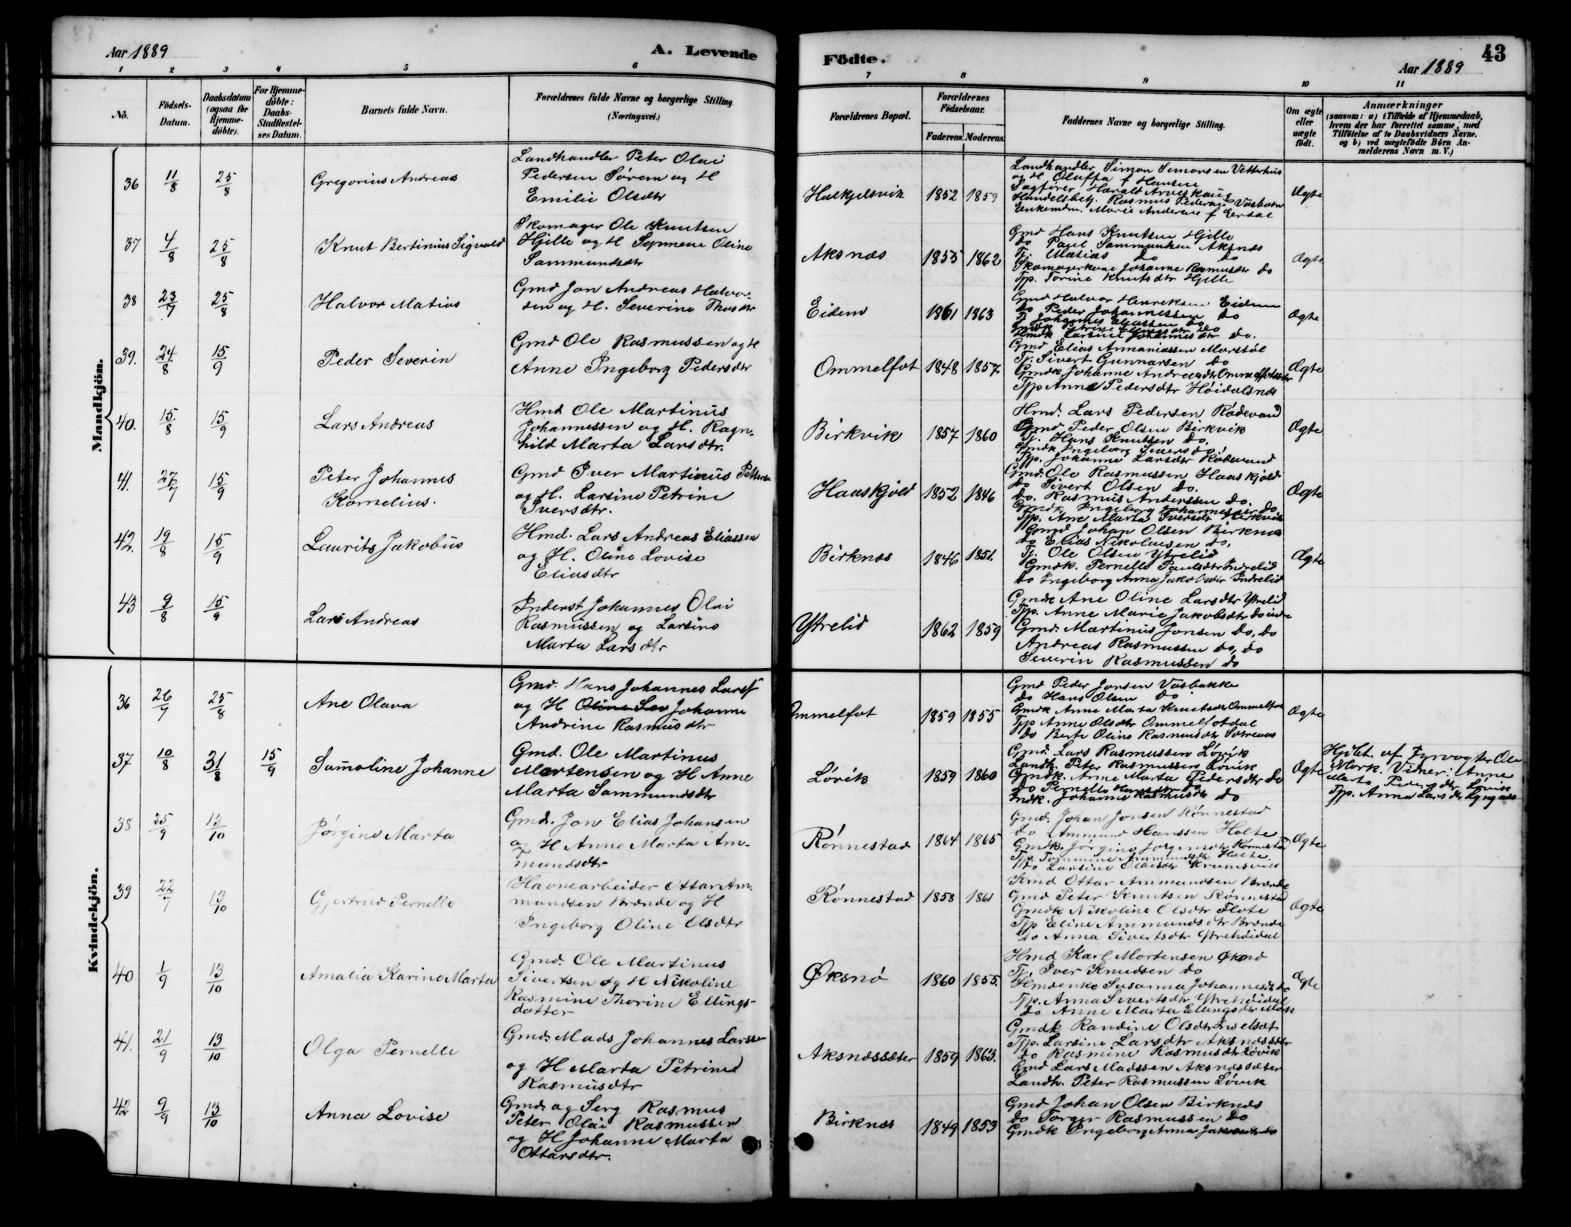 Aar 1889
A. Levende
Födte.
Aar 1889
43
1 2 3 4 5 6 7 8 9 10 11
No.
Födsels-
Datum.
Daabsdatum
(ogsaa for
Hjemme-
döbte).
For Hjemme-
döbte:
Daabs-
Stadfæstel-
ses Datum.
Barnets fulde Navn.
Forældrenes fulde Navne og borgerlige Stilling
(Næringsvei.)
Forældrenes Bopæl.
Forældrenes
Födselsaar.
Faderens. Moderens.
Faddernes Navne og borgerlige Stilling.
Om ægte
eller
uægte
født.
Anmærkninger
(saasom: a) i Tilfælde af Hjemmedaab,
hvem der har forrettet samme, med
Tilföielse af to Daabsvidners Navne.
og b) ved uægtefödte Börn An-
melderens Navn m. V.)
Mandkjön.
36 11/8 25/8 Gregorius Andreas
Landhandler Peter Olai
Pedersen Sørem og H
Emilie Olsdtr
Halkjelsvik 1852 1859
Landhandler Simon Simonsen Vetterhus
og H Oluffa f Hansen
Sagfører Harald
Handelsbetj. Rasmus Pedersen
Enkemdm. Marie Andersen f Eerdal
Ægte
37 4/8 25/8 Knut Bertinius Sigvald
Skomager Ole Knutsen
Hjelle og H Synneve Oline
Sammundsdtr
Aksnæs 1855 1862
Gmd Hans Knutsen Hjelle
do Paul Sammundsen Aksnæs
Tj. Matias do do
Skomagerkone Johanne Rasmusdtr do
Tjp. Torine Knutsdtr Hjelle
Ægte
38 23/7 25/8 Halvor Matias
Gmd Jon Andreas Halvor-
sen og H. Severine Thosdtr
Eidem 1861 1863
Gmd Halvor Henriksen Eidem
do Peder Johannessen do
Ægte
39. 24/8 15/9 Peder Severin
Gmd Ole Rasmussen og H
Anne Ingeborg Pedersdtr
Ommelfot 1848 1857
Gmd Elias Annaniassen Morstøl
Tj. Sivert Gunnarsen do
Gmdk Johanne Andreasdtr Ommelfotsæter
Tjp Anne Pedersdtr Høidalsnes
Ægte
40. 15/8 15/9 Lars Andreas
Hmd Ole Martinus
Johannessen og H. Ragn-
hild Marta Larsdtr.
Birkvik 1857 1860
Hmd. Lars Pedersen Rødevand
Gmd Peder Olsen Birkvik
Tj. Hans Knutssen do.
Gmdk Ingeborg Siversdtr
Tjp. Johanne Larsdtr Rødevand
Ægte
41. 27/7 15/9 Peter Johannes
Kornelius.
Gmd Iver Martinus Pettersen
og H. Larsine Petrine
Iversdtr.
Haaskjold 1852 1846
Gmd Ole Rasmussen Haaskjold
do Sivert Olsen do.
do. Rasmus Anderssen do.
Gmdk Ingeborg Johannesdtr do
Tjp. Ane Marta Iversdtr Birkvik
Ægte
42. 19/8 15/9 Laurits Jakobus
Hmd. Lars Andreas Eliassen
og H. Oline Lovise
Eliasdtr
Birknæs 1846 1851.
Gmd Johan Olsen Birknæs
do Elias Nikolaisen do.
Tj. Ole Olsen Ytrelid
Gmdk. Pernelle Paulsdtr Indrelid
do Ingeborg Anna Jakobsdtr Indrelid
Ægte
43 9/8 15/9 Lars Andreas
Inderst Johannes Olai
Rasmussen og Larsine
Marta Larsdtr
Ytrelid 1862 1859
Gmdk Ane Oline Larsdtr Ytrelid
Tjp. Anne Marie Jakobsdtr do indre
Gmd. Martinus Jonsen do, do
Andreas Rasmussen do, do
Severin Rasmussen do
Kvindekjön.
36 26/7 25/8 Ane Olava
Gmd. Hans Johannes Larss
og H Johanne
Andrine Rasmusdtr
Ommelfot 1859 1855
Gmd Peder Jonsen Vasbakke
do Hans Olsen do
Gmdk Anne Marta Knutsdtr Ommelfot
Tjp Anne Olsdtr Ommelfotdal
do Berte Oline Rasmusdtr
Ægte
37 10/8 31/8 15/9 Samoline Johanne
Gmd. Ole Martinus
Mortensen og H Anne
Marta Sammundsdtr
Løvik 1859 1860
Gmd. Lars Rasmussen Løvik
Landh. Peter Rasmussen Løvik
Gmdk. Anne Marta Pedersdtr do
do Pernelle Hansdtr do
Indk. Johanne Rasmusdtr do
Ægte
Hjdbt. af Fyrvogter Ole
Mork. Vidner: Anne
Marta Pedersdtr Løvik
Tjp. Anna Larsdtr
38 25/9 13/10 Jørgine Marta
Gmd. Jon Elias Johansen
og H Anne Marta Am-
mundsdtr
Rønnestad 1864 1865
Gmd. Johan Jonsen Rønnestad
do Ammund Hanssen Holte
Gmdk. Jørgine Jørgensdtr Rønnestad
Tjp. Tommine Ammundsdtr Holte
do Larsine Olaisdtr Krumsvik
Ægte
39 22/7 13/10 Gjertrud Pernelle
Havnearbeider Ottar Am-
mundsen Brænde og H
Ingeborg Oline Olsdtr
Rønnestad 1858 1861
Kmd Ottar Ammundsen Brænde
Gmd Peter Knutsen Rønnestad
Gmdk Nikoline Olsdtr Flote
Tjp Eline Ammundsdtr Brænde
do Anna Sivertsdtr Ytrehøidal
Ægte
40 1/9 13/10 Amalia Karine Marta
Gmd Ole Martinus
Sivertsen og H Nikoline
Rasmine Thorine Ellings-
datter
Øksnø 1860 1855.
Hmd Karl Mortensen Øksnø
Tj. Iver Knudsen do
Hmdenke Susanna Johannesdtr do
Tjp. Anna Sivertsdtr Ytrehøidal
do Anne Marta Ellingsdtr Mork
Ægte
41. 21/9 13/10 Olga Pernelle
Gmd. Mads Johannes Larsen
og H Marta Petrine
Rasmusdtr
Aksnæssæter 1859 1863.
Gmdk Randine Olsdtr
Tjp. Larsine Larsdtr Aksnæssæter
do Rasmine Rasmusdtr Løvik
Gmd Lars Madssen Aksnæssæter
Landh. Peter Rasmussen Løvik
42 9/9 13/10 Anna Lovise
Gmd. og Serg Rasmus
Peter Olai Rasmussen
og H Johanne Marta
Ottarsdtr.
Birknæs 1849 1853
Gmd Johan Olsen Birknæs
do Torger Rasmussen do
Gmdk Ingeborg Anna Jakobsdtr do